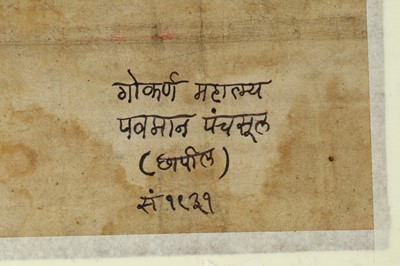 गोकर्ण महात्म्य
पवमान पंचसूल
(छापील)
सं १९३१